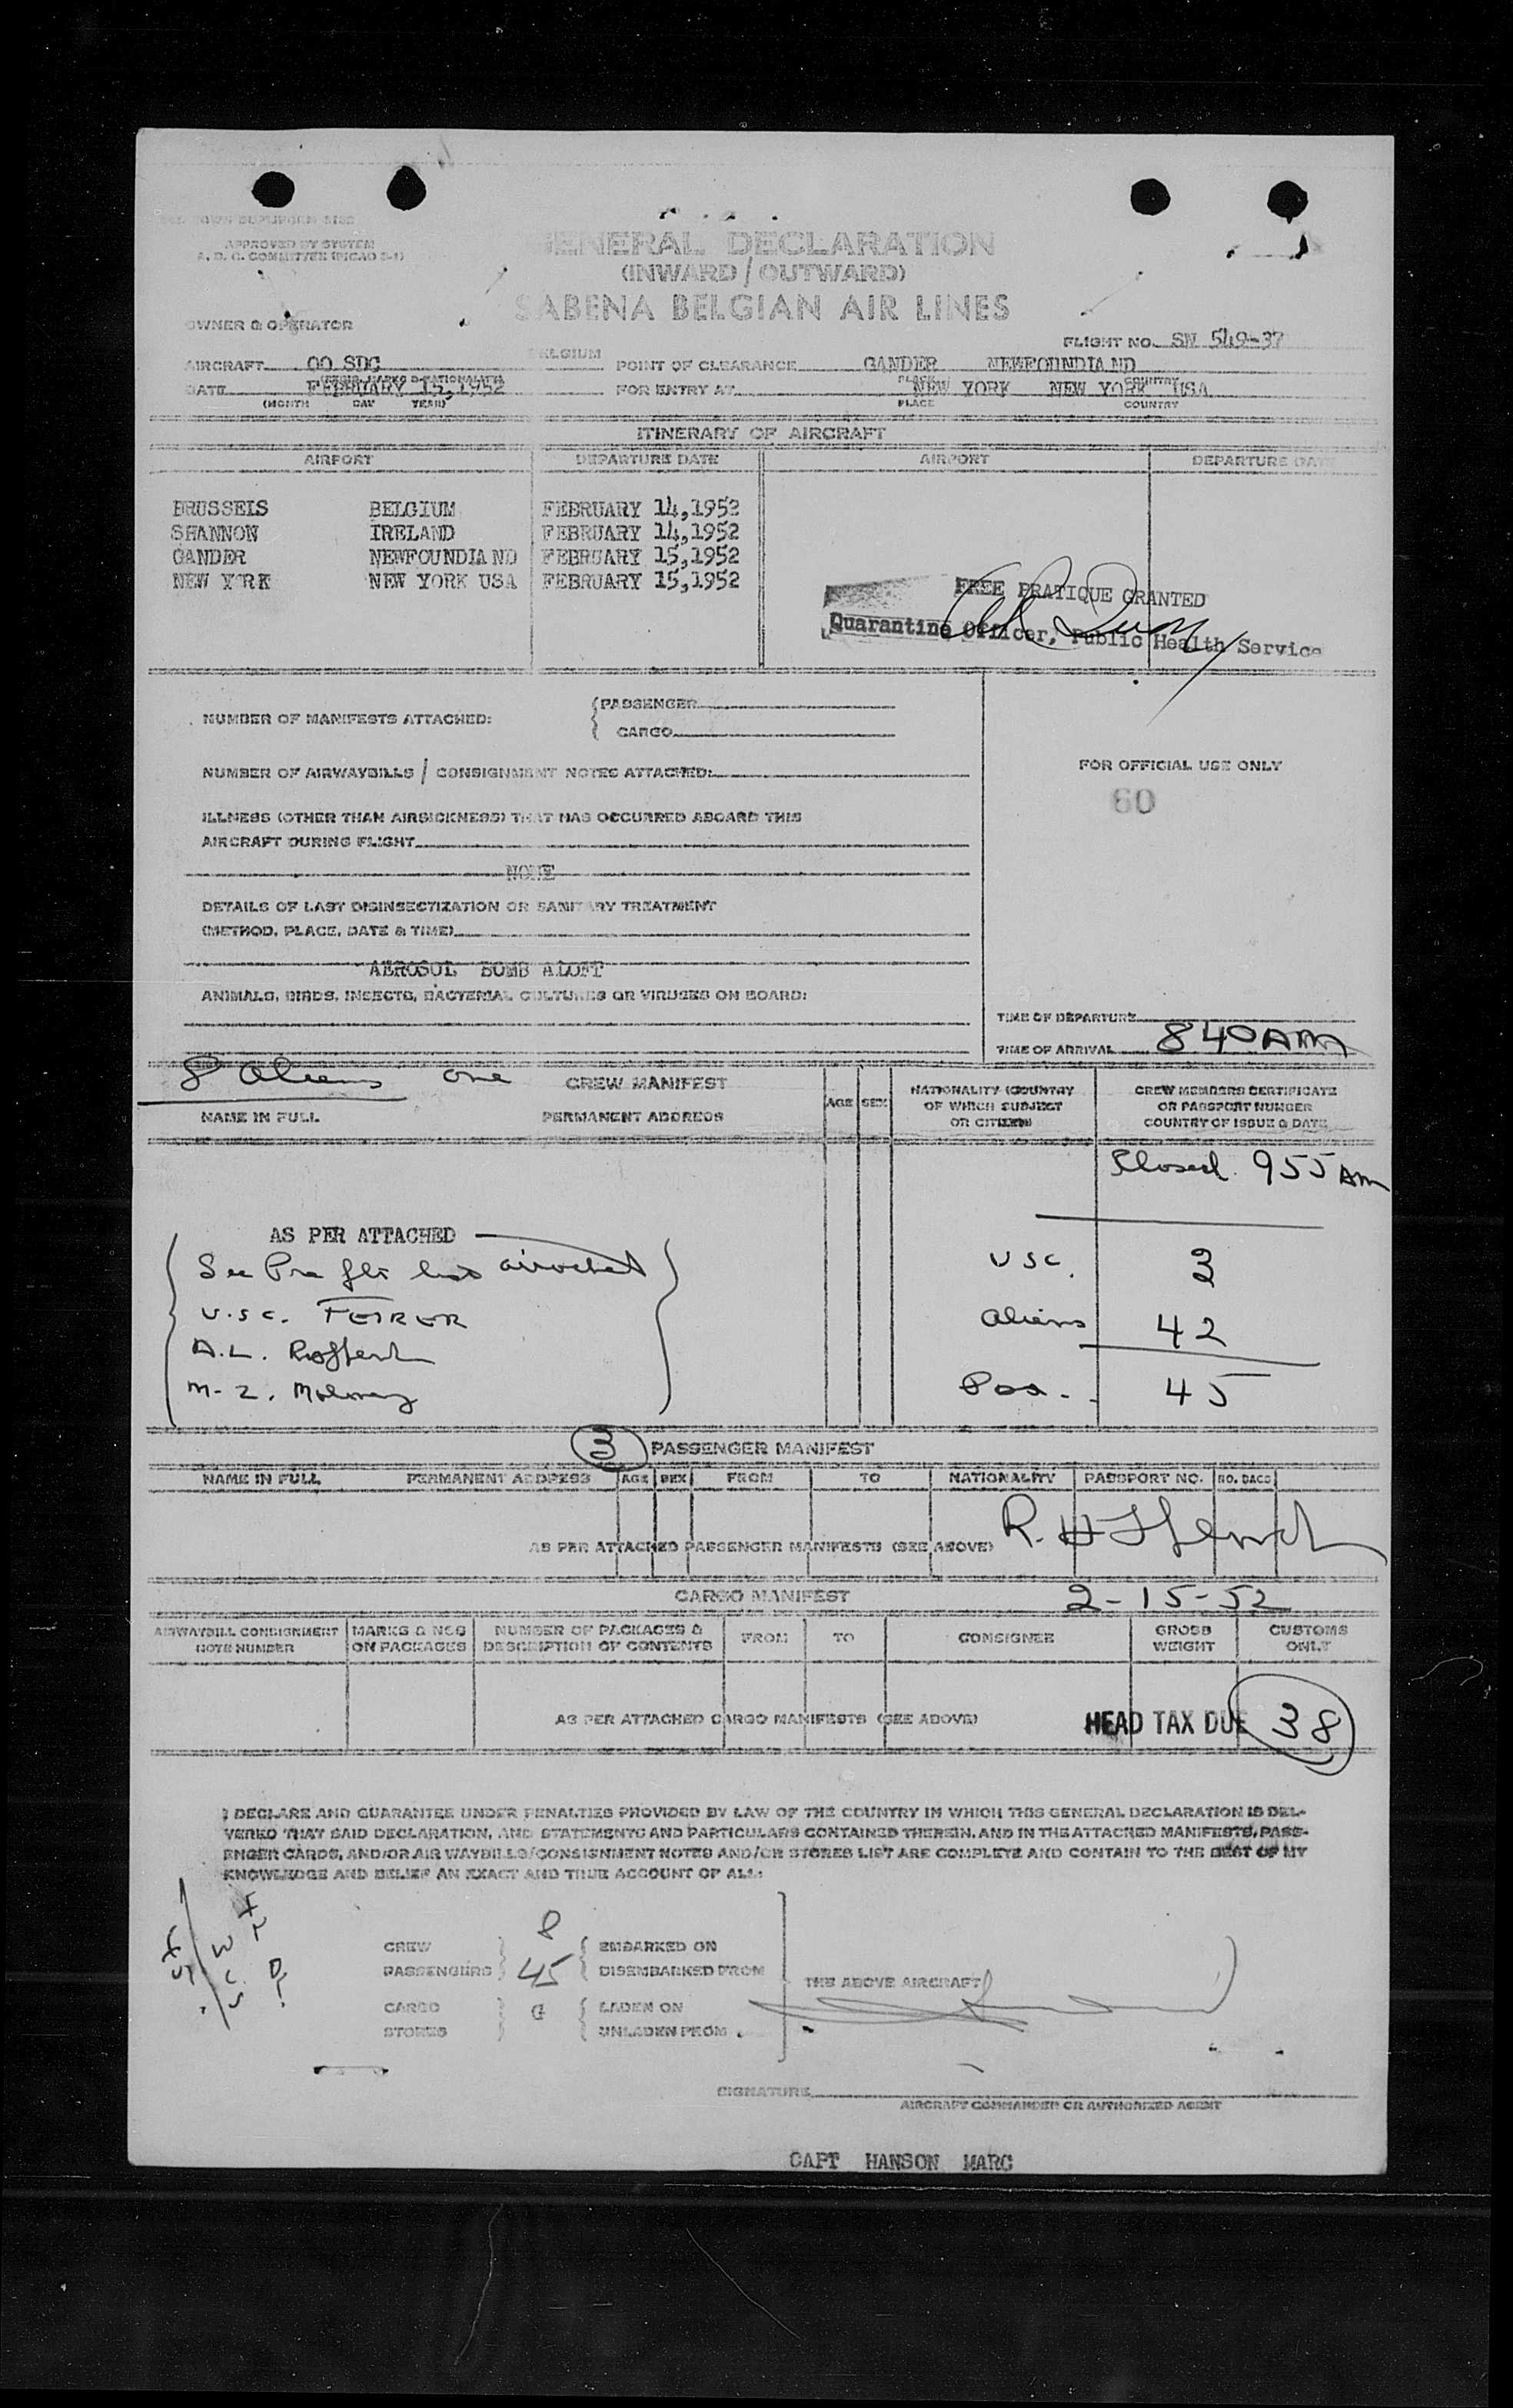 APPROVED BY SYSTEM
A. D. C. COMMITTEE (PICAO 2-1)
ENERAL DECLARATION
(INWARD / OUTWARD)
SABENA BELGIAN AIR LINES
OWNER & OPERATOR
FLIGHT NO. SN 549-37
AIRCRAFT OO SDC BELGIUM POINT OF CLEARANCE GANDER NEWFOUNDLAND
DATE FEBRUARY 15,1952 FOR ENTRY AT NEW YORK NEW YORK USA
(MONTH DAY YEAR) PLACE COUNTRY
ITINERARY OF AIRCRAFT
AIRPORT DEPARTURE DATE AIRPORT DEPARTURE DATE
BRUSSELS BELGIUM FEBRUARY 14,1952
SHANNON IRELAND FEBRUARY 14,1952
GANDER NEWFOUNDLAND FEBRUARY 15,1952
NEW YORK NEW YORK USA FEBRUARY 15,1952
FREE PRATIQUE GRANTED
Quarantine Officer, Public Health Service
NUMBER OF MANIFESTS ATTACHED: PASSENGER
CARGO
NUMBER OF AIRWAYBILLS / CONSIGNMENT NOTES ATTACHED:
FOR OFFICIAL USE ONLY
60
ILLNESS (OTHER THAN AIRSICKNESS) THAT HAS OCCURRED ABOARD THIS
AIRCRAFT DURING FLIGHT
NONE
DETAILS OF LAST DISINSECTIZATION OR SANITARY TREATMENT
(METHOD, PLACE, DATE & TIME)
AEROSOL BOMB ALOFT
ANIMALS, BIRDS, INSECTS, BACTERIAL CULTURES OR VIRUSES ON BOARD:
TIME OF DEPARTURE
TIME OF ARRIVAL 840AM
8 Aliens one CREW MANIFEST
NAME IN FULL PERMANENT ADDRESS AGE SEX NATIONALITY (COUNTRY OF WHICH SUBJECT OR CITIZEN) CREW MEMBERS CERTIFICATE OR PASSPORT NUMBER COUNTRY OF ISSUE & DATE
Closed 955 AM
AS PER ATTACHED
See Pre flt list attached
U.S.C. FEIRER
A.L.
M-2.
USC. 3
Aliens 42
Pax. 45
3 PASSENGER MANIFEST
NAME IN FULL PERMANENT ADDRESS AGE SEX FROM TO NATIONALITY PASSPORT NO. NO. BAGS
AS PER ATTACHED PASSENGER MANIFESTS (SEE ABOVE)
CARGO MANIFEST 2-15-52
AIRWAYBILL CONSIGNMENT NOTE NUMBER MARKS & NOS ON PACKAGES NUMBER OF PACKAGES & DESCRIPTION OF CONTENTS FROM TO CONSIGNEE GROSS WEIGHT CUSTOMS ONLY
AS PER ATTACHED CARGO MANIFESTS (SEE ABOVE)
HEAD TAX DUE 38
I DECLARE AND GUARANTEE UNDER PENALTIES PROVIDED BY LAW OF THE COUNTRY IN WHICH THIS GENERAL DECLARATION IS DEL-
VERED THAT SAID DECLARATION, AND STATEMENTS AND PARTICULARS CONTAINED THEREIN, AND IN THE ATTACHED MANIFESTS, PASS-
ENGER CARDS, AND/OR AIR WAYBILLS/CONSIGNMENT NOTES AND/OR STORES LIST ARE COMPLETE AND CONTAIN TO THE BEST OF MY
KNOWLEDGE AND BELIEF AN EXACT AND TRUE ACCOUNT OF ALL:
CREW 8 EMBARKED ON
PASSENGERS 45 DISEMBARKED FROM
THE ABOVE AIRCRAFT
CARGO LADEN ON
STORES UNLADEN FROM
SIGNATURE
AIRCRAFT COMMANDER OR AUTHORIZED AGENT
CAPT HANSON MARC